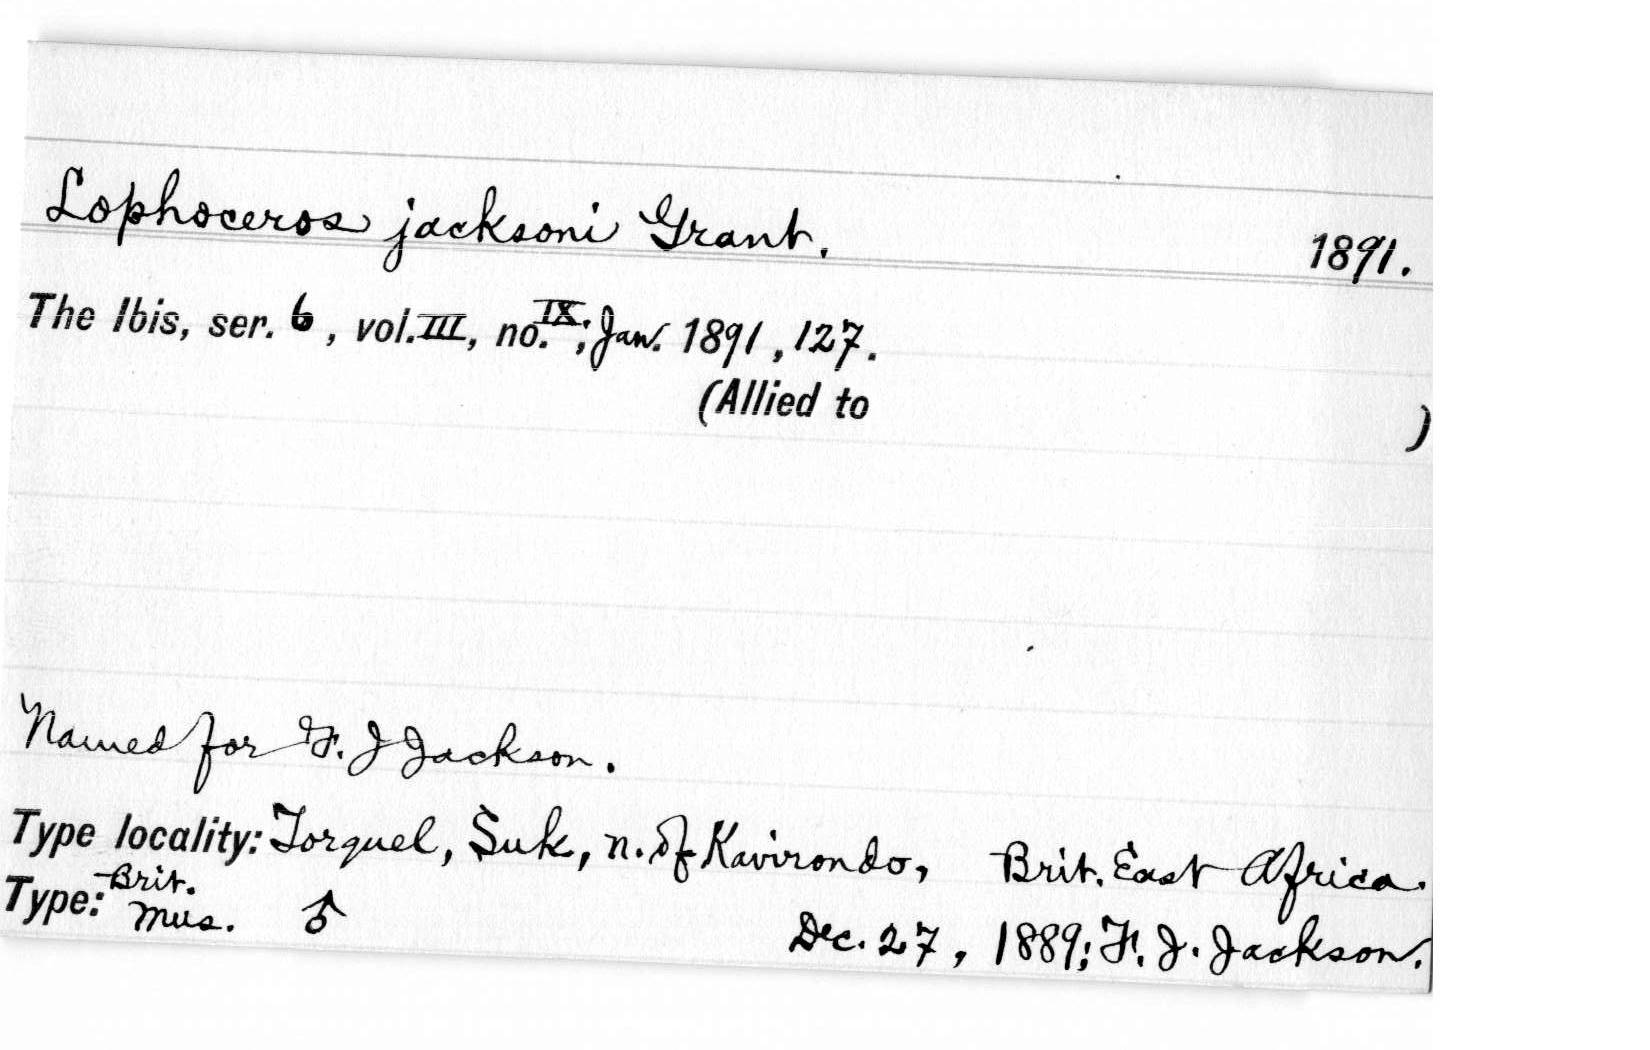 Lophoceros jacksoni Grant. 1891.
The Ibis, ser. 6, vol. III, no. IX; Jan. 1891, 127.
(Allied to )
Named for F. J Jackson.
Type locality: Torquel, Suk, n. of Kavirondo, Brit. East Africa.
Type: Brit. Mus. ♂ Dec. 27, 1889; F. J. Jackson.